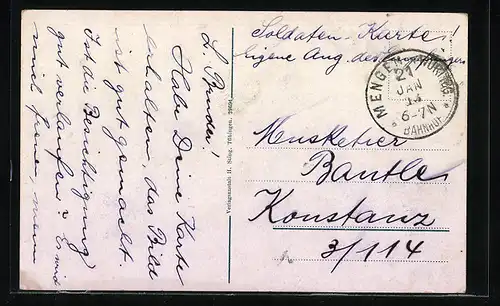 L. Bruder!
Habe Deine Karte
erhalten, das Bild
ist gut gemacht
Ist die Besichtigung
gut verlaufen?
mich freuen, wenn
Verlagsanstalt H. Sting, Tübingen.
Soldaten-Karte!
Eigene Ang. des
MENGEN
21
JAN
6-7N
* BAHNHOF *
Musketier
Bantle
Konstanz
3/114